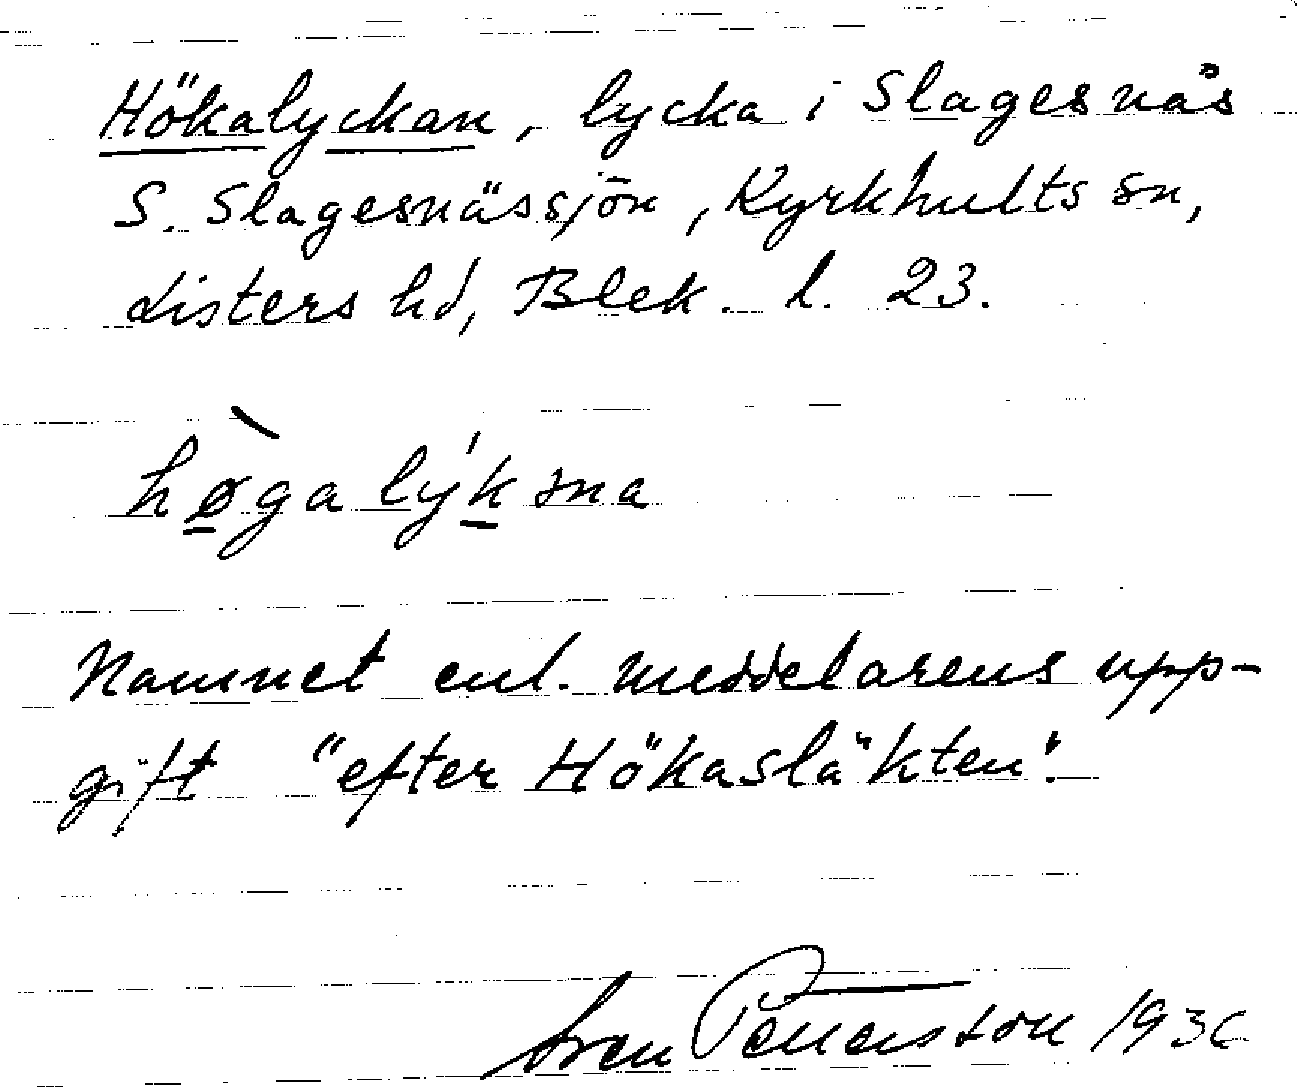 Hökalyckan, lycka i Slagesnäs
S. Slagesnässjön, Kyrkhults sn,
Listers hd, Blek. l. 23.
høgalýkәna
Namnet enl. meddelarens upp-
gift "efter Hökasläkten".
Sven Petersson 1936